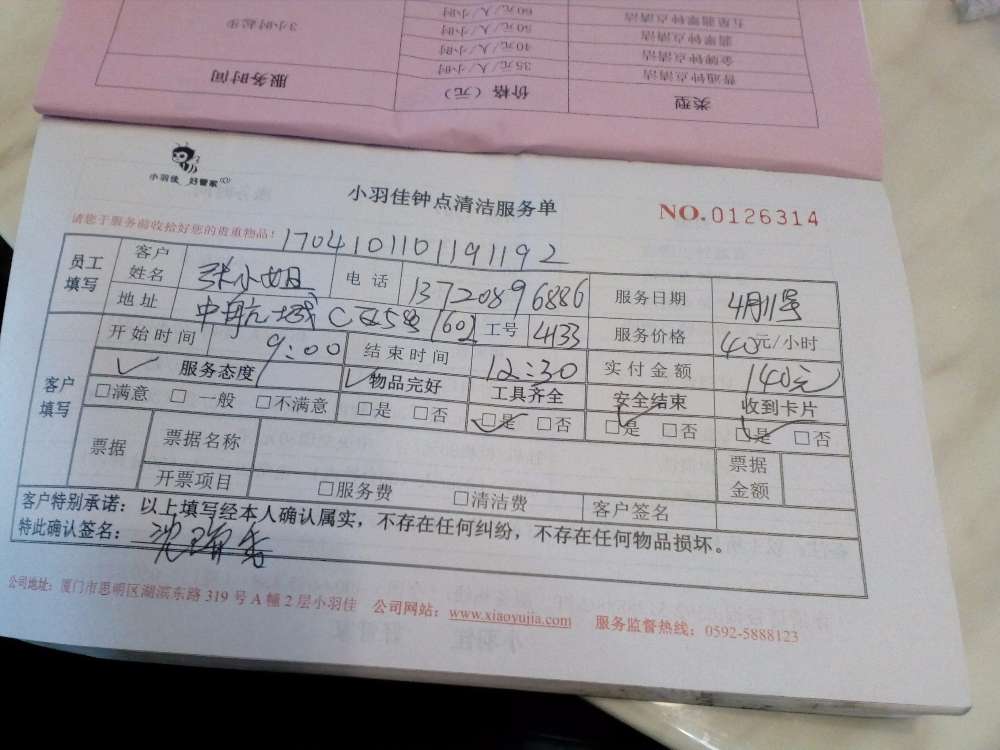 类型 价格（元） 服务时间
普通钟点清洁 35元/人/小时
金牌钟点清洁 40元/人/小时 3小时起步
翡翠钟点清洁 50元/人/小时
五星翡翠钟点清洁 60元/人/小时
小羽佳 好管家
小羽佳钟点清洁服务单
NO.0126314
请您于服务前收拾好您的贵重物品！
1704101101191192
员工填写 客户姓名 张小姐 电话 13720896886 服务日期 4月11号
地址 中航城C区5# 1602 工号 4133 服务价格 40元/小时
客户填写 开始时间 9:00 结束时间 12:30 实付金额 140元
服务态度 物品完好 工具齐全 安全结束 收到卡片
□满意 □一般 □不满意 □是 □否 □是 □否 □是 □否 □是 □否
票据 票据名称 票据金额
开票项目 □服务费 □清洁费 客户签名
客户特别承诺：以上填写经本人确认属实，不存在任何纠纷，不存在任何物品损坏。
特此确认签名：
公司地址：厦门市思明区湖滨东路319号A幢2层小羽佳 公司网站：www.xiaoyujia.com 服务监督热线：0592-5888123